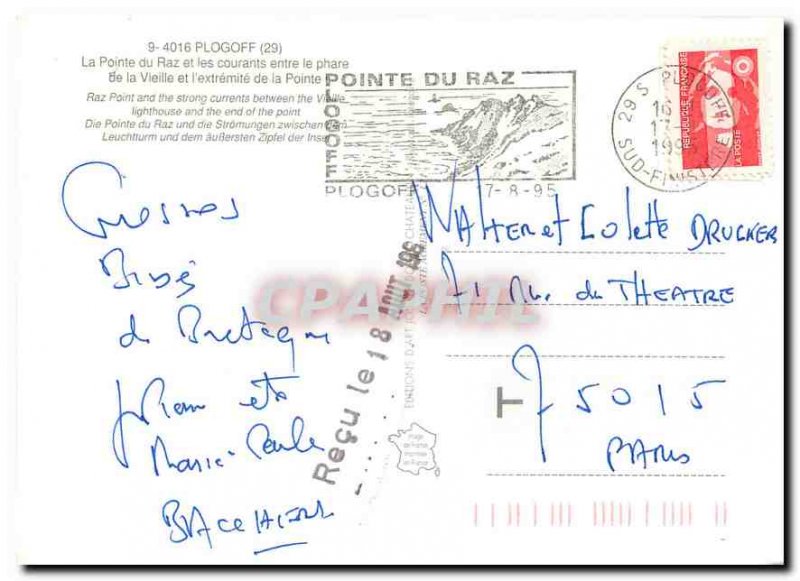 9- 4016 PLOGOFF (29)
La Pointe du Raz et les courants entre le phare
de la Vieille et l'extrémité de la Pointe
Raz Point and the strong currents between the Vieille
lighthouse and the end of the point
Die Pointe du Raz und die Strömungen zwischen dem
Leuchtturm und dem äußersten Zipfel der Insel
POINTE DU RAZ
PLOGOFF
PLOGOFF 17-8-95
29 S PLOGOFF
16
17
199
SUD-FINISTERE
REPUBLIQUE FRANÇAISE
LA POSTE
Grosses
Bises
de Bretagne
Julien et
Marie-Paule
BACHELIER
Reçu le 18 AOUT 199
EDITIONS D'ART
CPAPHIL
Walter et Colette DRUCKER
71 Rue du THEATRE
75015
PARIS
T
Image
de France